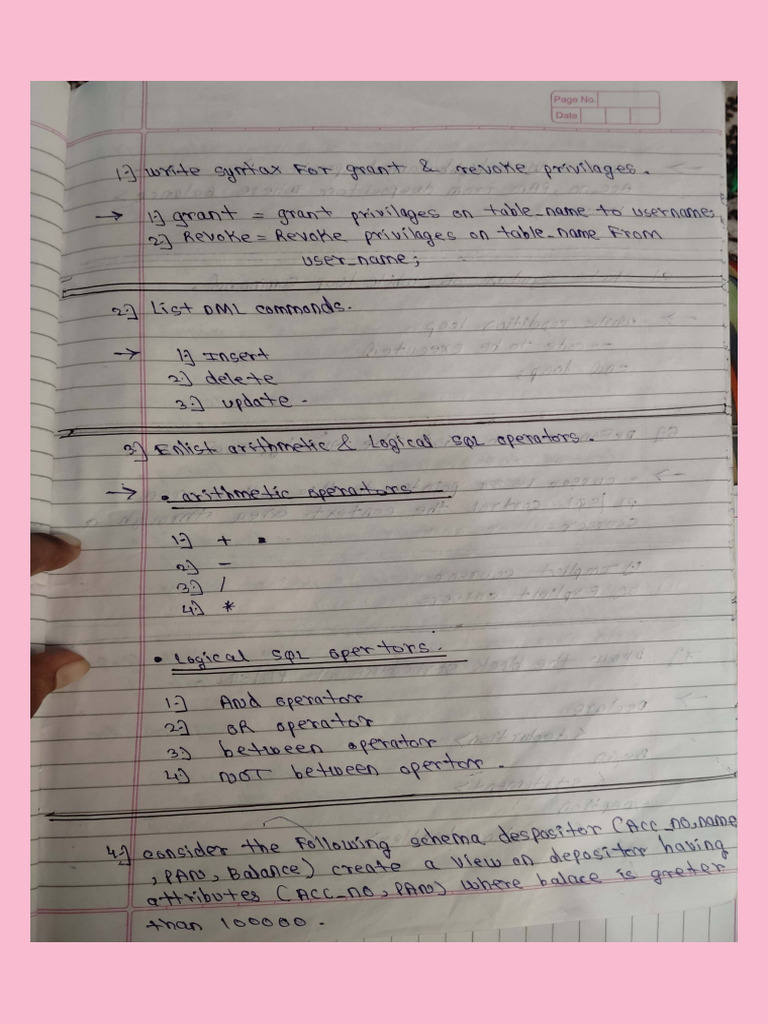 Page No.
Date
1.) write syntax For grant & revoke privilages.
→ 1.) grant = grant privilages on table_name to username;
2.) Revoke = Revoke privilages on table_name From
user_name;
2.) List DML commands.
→ 1.) Insert
2.) delete
3.) update.
3.) Enlist arithmetic & Logical SQL operators.
→ • arithmetic operators
1.) +
2.) -
3.) /
4.) *
• Logical SQL opertors.
1.) AND operator
2.) OR operator
3.) between operator
4.) NOT between opertor.
4.) consider the Following schema despositor (ACC_NO, name
, PAN, Balance) create a view on depositor having
attributes (ACC_NO, PAN) where balace is greter
than 100000.